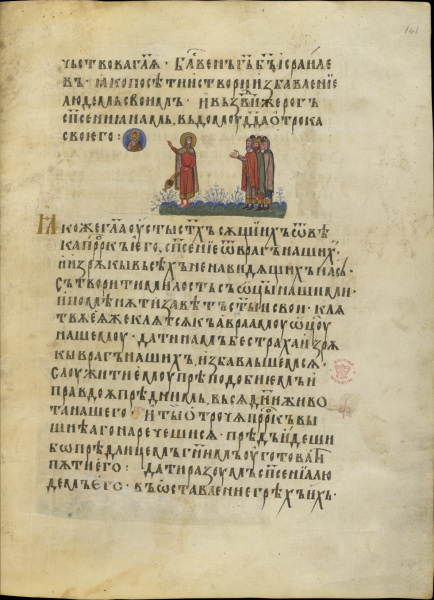 чьствова гл҃ѧ · бл҃вен гь б҃ь і҃зраиле
въ · ꙗко посѣти и створи избавленїе
людемь своимъ · и възⷣвиже рогъ
сп҃сенїа намь, въ домоу дв҃да отрока
своего :
Ꙗкоже гл҃а оусты ст҃хъ сѫщїихъ ѿ вѣ
ка пр҃ркъ его, сп҃сенїе ѿ врагъ нашиⷯ ·
и изрѫкы въсѣхъ ненавидѧщихъ насъ ·
Сътворити милость съ ѡц҃ы нашими ·
и помѣнѫти завѣтъ ст҃ыи свои · клѧ
твѫ еѫже клѧтсѧ къ авраамоу ѡц҃оу
нашемоу · дати намъ бестраха изрѫ
кы врагъ нашихъ, избавльшемсѧ ·
Слоужити емоу прѣподобїемъ и
правдоѫ прѣд нимь, въсѧ дн҃и живо
та нашего · и ты отрочѧ пр҃ркъ вы
шнѣаго наречешисѧ · прѣдъидеши
бо прѣд лицемъ гн҃имъ оуготовати
пѫти его : дати разоумъ сп҃сенїа лю
демъ его · въ ѡставленїе грѣхъ ихъ ·
141